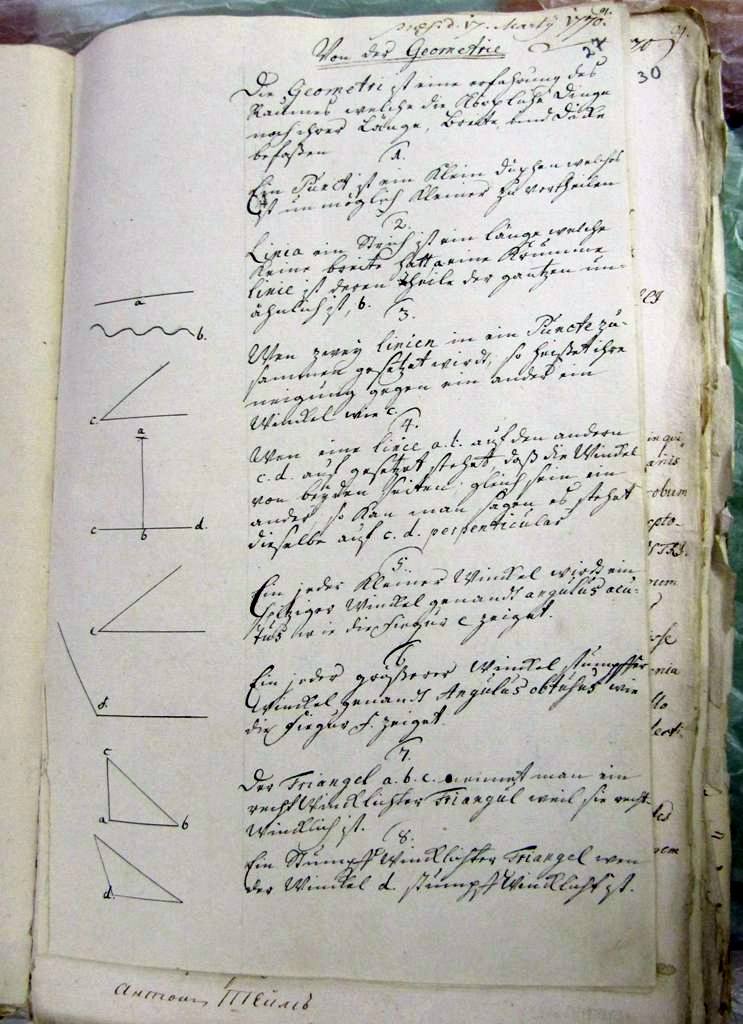 præs. d. 17. Martÿ 1770.
Von der Geometrie
27
30
Die Geometri ist eine erfahrung des
Raumes welche die Körpliche Dinge
nach ihrer Länge, Breite und Dicke
befaßen
1.
Ein Punct ist ein klein düpchen welches
ist unmöglich kleiner zu vertheilen
2.
Linea ein Strich ist ein länge welche
keine breite hatt a eine Krumme
linie ist deren theile der gantzen un-
ähnlich ist, b.
3.
Wen zweÿ linien in ein Puncte zu-
sammen gesetzet wirdt, so heißet ihre
neigung gegen ein ander ein
Winckel wie c.
4.
Wen eine linie a.b. auf den andern
c.d. auf gesetzet stehet, daß die Winckel
von beÿden seiten gleich sein ein
ander, so kan man sagen es stehet
dieselbe auf c.d. perpenticular
5.
Ein jeder kleiner Winckel wirdt ein
spitziger Winckel genandt angulus acu-
tus wie die fiegur e zeiget.
6
Ein jeder größerer Winckel stumpffer
Winckel genandt Angulus obtusus wie
die fiegur f. zeiget.
7.
Der Triangel a.b.c. nennet man ein
recht Wincklichter Triangul weil sie recht
Wincklich ist.
8.
Ein Stumpff Wincklichter Triangel wen
der Winckel d. stumpff Wincklicht ist.
a
b.
c
a
c
b
d.
e
f.
c
a
b
d.
Антонъ Тейльсъ